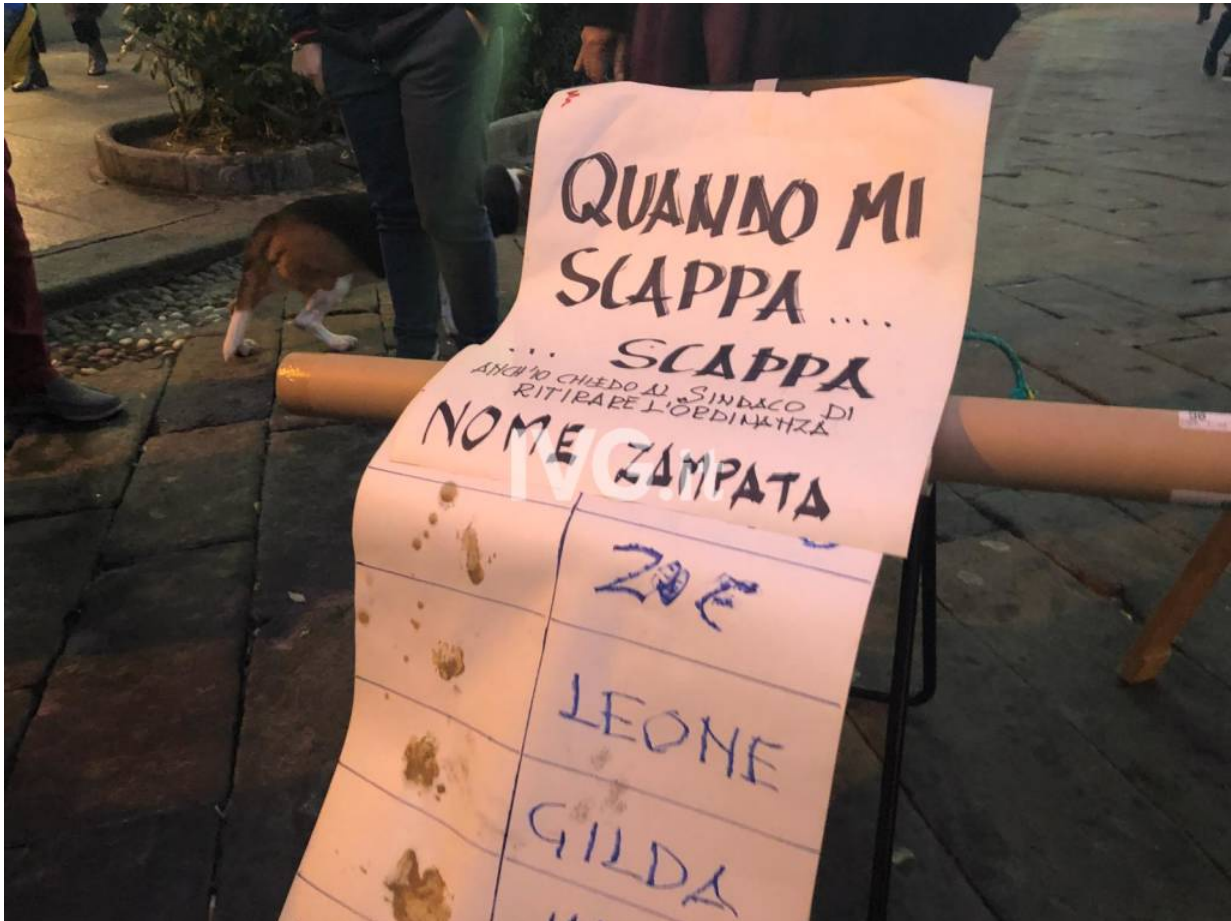 QUANDO MI
SCAPPA....
... SCAPPA
ANCH'IO CHIEDO AL SINDACO DI
RITIRARE L'ORDINANZA
NOME ZAMPATA
IVG.it
ZOE
LEONE
GILDA